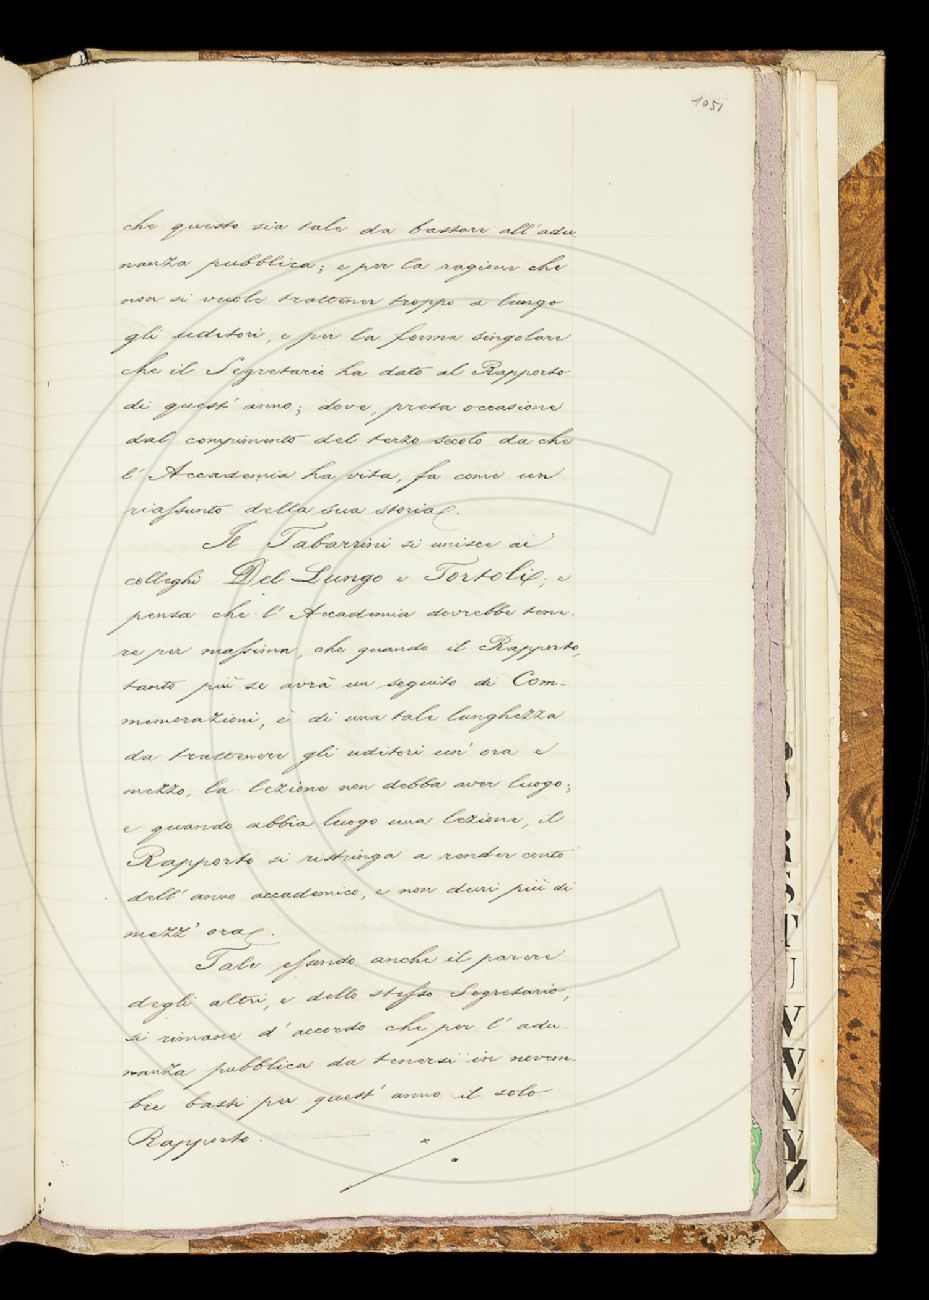 1051
che questo sia tale da bastare all'adu
nanza pubblica; e per la ragione che
non si vuole trattener troppo a lungo
gli uditori, e per la forma singolare
che il Segretario ha dato al Rapporto
di quest'anno; dove, presa occasione
dal compimento del terzo secolo da che
l'Accademia ha vita, fa come un
riassunto della sua storia.
Il Tabarrini si unisce ai
colleghi Del Lungo e Tortoli; e
pensa che l'Accademia dovrebbe tene-
re per massima, che quando il Rapporto,
tanto più se avrà un seguito di Com-
memorazioni, è di una tale lunghezza
da trattenere gli uditori un'ora e
mezzo, la lezione non debba aver luogo;
e quando abbia luogo una lezione, il
Rapporto si restringa a render conto
dell'anno accademico, e non duri più di
mezz'ora.
Tale essendo anche il parere
degli altri, e dello stesso Segretario,
si rimane d'accordo che per l'adu-
nanza pubblica da tenersi in novem-
bre basti per quest'anno il solo
Rapporto.
R
S
T
U
V
W
X
Y
Z